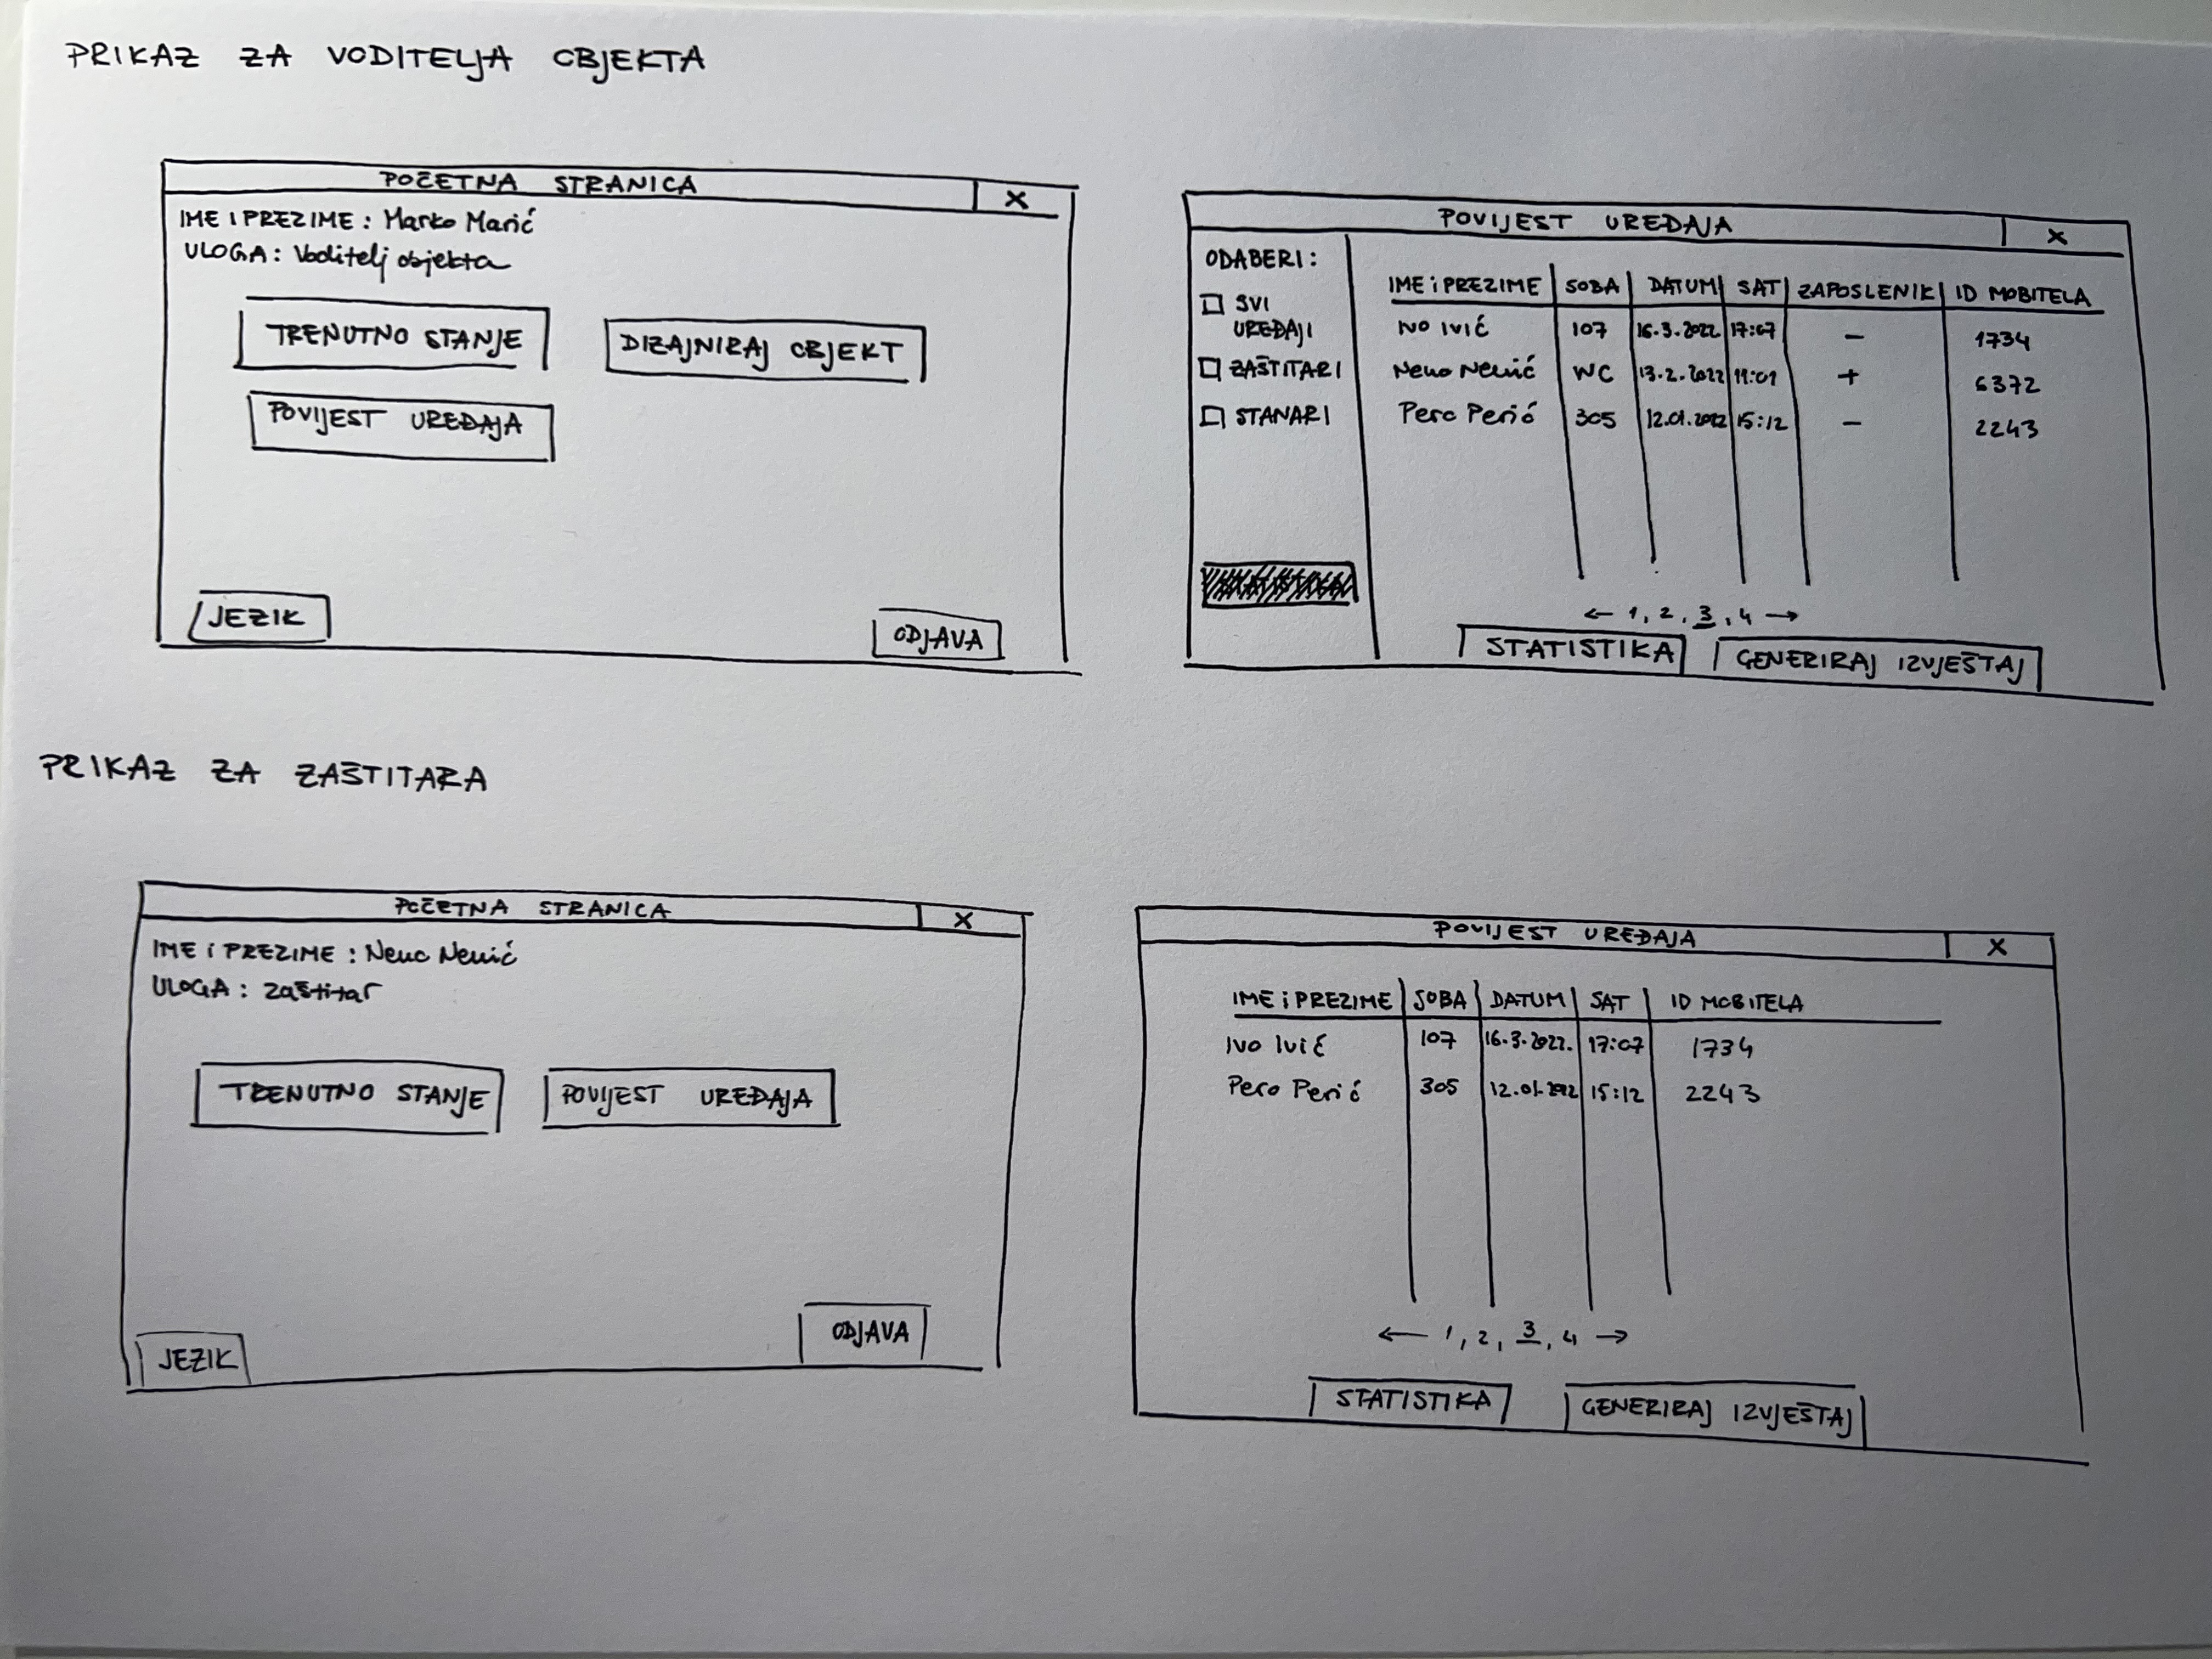 PRIKAZ ZA VODITELJA OBJEKTA
POČETNA STRANICA X
IME I PREZIME : Marko Marić
ULOGA : Voditelj objekta
TRENUTNO STANJE
DIZAJNIRAJ OBJEKT
POVIJEST UREĐAJA
JEZIK
ODJAVA
POVIJEST UREĐAJA X
ODABERI :
SVI
UREĐAJI
ZAŠTITARI
STANARI
IME i PREZIME SOBA DATUM SAT ZAPOSLENIK ID MOBITELA
Ivo Ivić 107 16.3.2022 17:07 – 1734
Neno Nenić WC 13.2.2022 11:01 + 6372
Pero Perić 305 12.01.2022 15:12 – 2243
← 1, 2, 3, 4 →
STATISTIKA
GENERIRAJ IZVJEŠTAJ
PRIKAZ ZA ZAŠTITARA
POČETNA STRANICA X
IME i PREZIME : Neno Nenić
ULOGA : zaštitar
TRENUTNO STANJE
POVIJEST UREĐAJA
JEZIK
ODJAVA
POVIJEST UREĐAJA X
IME i PREZIME SOBA DATUM SAT ID MOBITELA
Ivo Ivić 107 16.3.2022. 17:07 1734
Pero Perić 305 12.01.2022 15:12 2243
← 1, 2, 3, 4 →
STATISTIKA
GENERIRAJ IZVJEŠTAJ